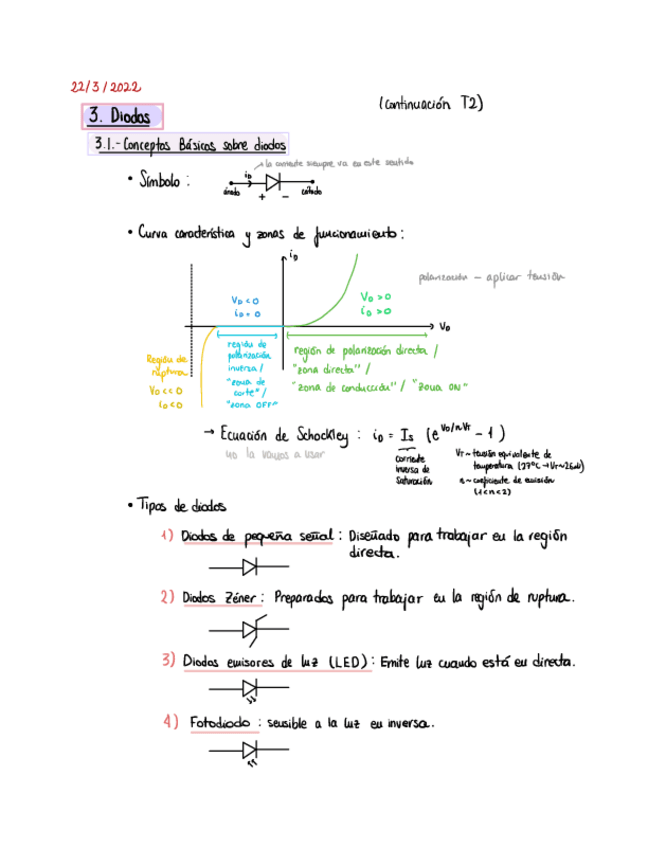 22/3/2022
(Continuación T2)
3. Diodos
3.1.- Conceptos Básicos sobre diodos
la corriente siempre va en este sentido
• Símbolo :
iD
ánodo
cátodo
+ −
• Curva característica y zonas de funcionamiento:
iD
polarización – aplicar tensión
VD < 0
iD = 0
VD > 0
iD > 0
VD
Región de
ruptura
VD << 0
iD < 0
región de
polarización
inversa /
"zona de
corte" /
"zona OFF"
región de polarización directa /
"zona directa" /
"zona de conducción" / "zona ON"
→ Ecuación de Schockley : iD = Is (e^VD/n·VT - 1)
no la vamos a usar
corriente
inversa de
saturación
VT ~ tensión equivalente de
temperatura (27ºC → VT ~ 26mV)
n ~ coeficiente de emisión
(1 < n < 2)
• Tipos de diodos
1) Diodos de pequeña señal : Diseñado para trabajar en la región
directa.
2) Diodos Zéner : Preparados para trabajar en la región de ruptura.
3) Diodos emisores de luz (LED) : Emite luz cuando está en directa.
4) Fotodiodo : sensible a la luz en inversa.